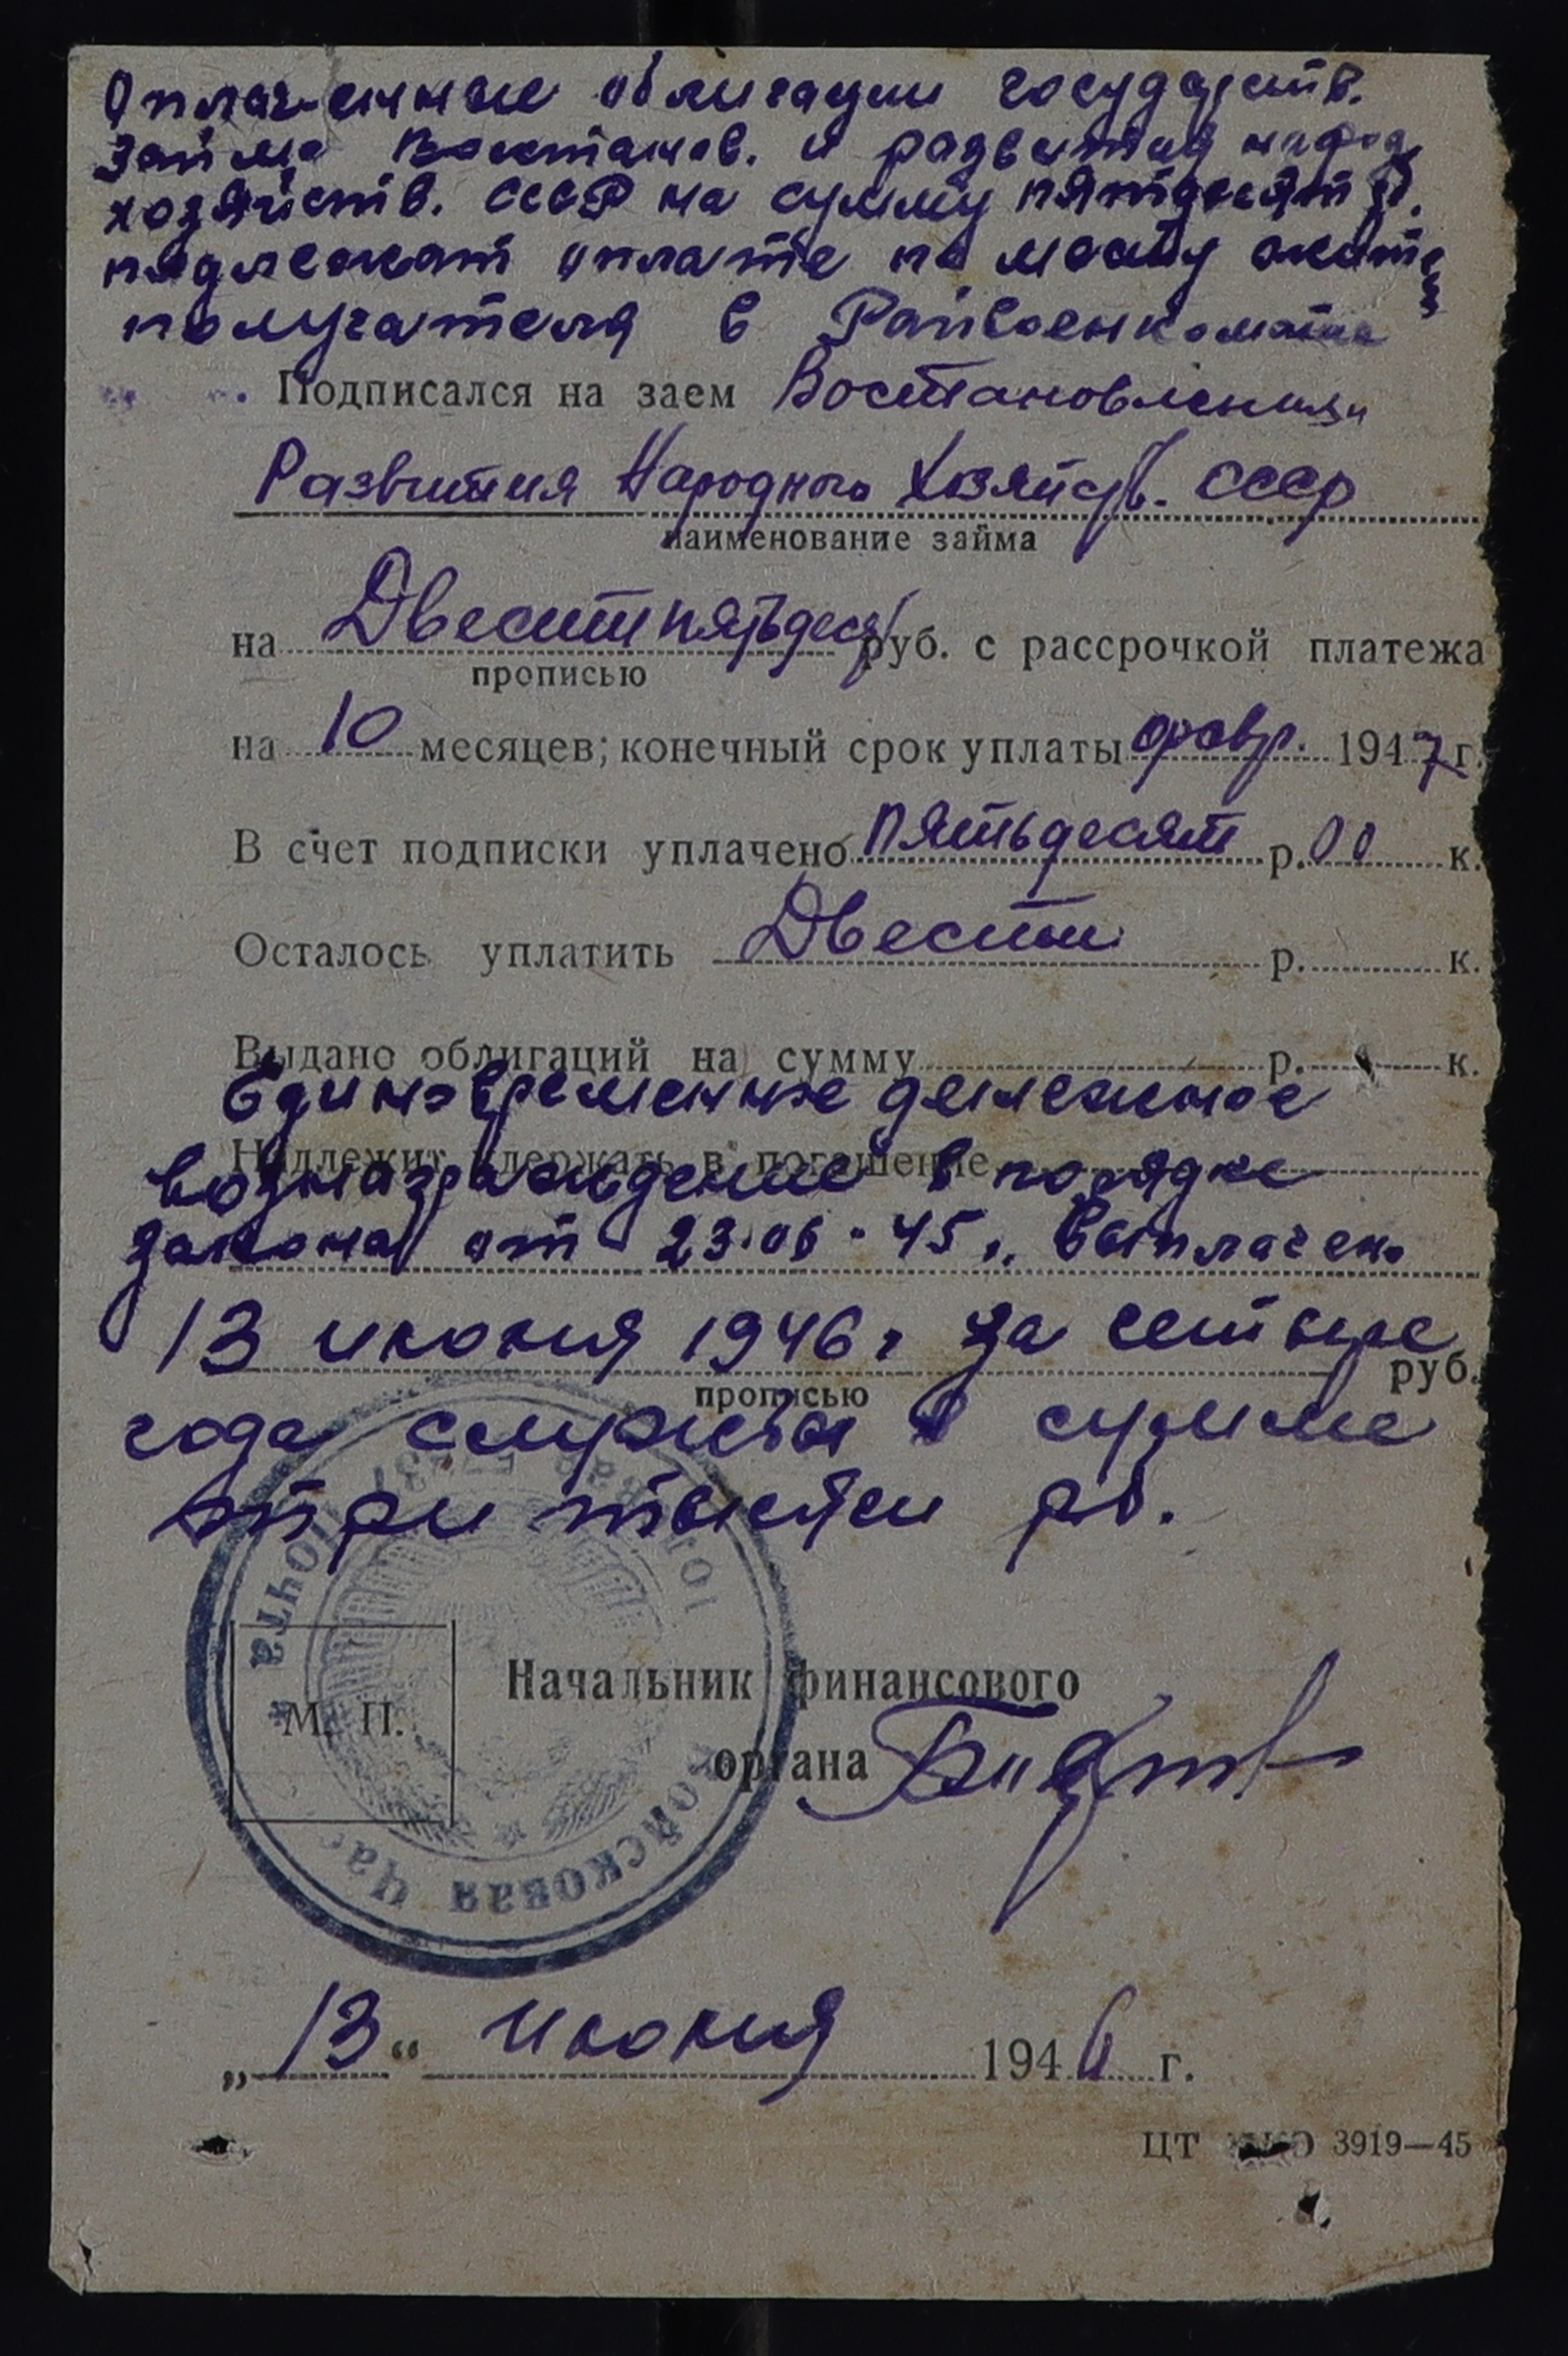 Оплаченные облигации государств.
Займа Восстанов. и развития народ
хозяйств. СССР на сумму пятдесят р.
подлежат оплате по месту
получателя в Райвоенкомате
Подписался на заем Востановления
Развития Народного Хозяйств. СССР
наименование займа
на Двести пятьдесят руб. с рассрочкой платежа
прописью
на 10 месяцев; конечный срок уплаты февр. 1947 г.
В счет подписки уплачено пятьдесят р. 00 к.
Осталось уплатить Двести р. к.
Выдано облигаций на сумму р. к.
Единовременное денежное
Надлежит удержать в погашение
вознаграждение в порядке
закона от 23.06.45 г. выплачено
13 июня 1946 г за четыре
руб.
прописью
года службы в сумме
три тысячи рб.
Полевая Почта
Войсковая Час
М. П.
Начальник финансового
органа
„13“ июня 1946 г.
ЦТ 3919—45